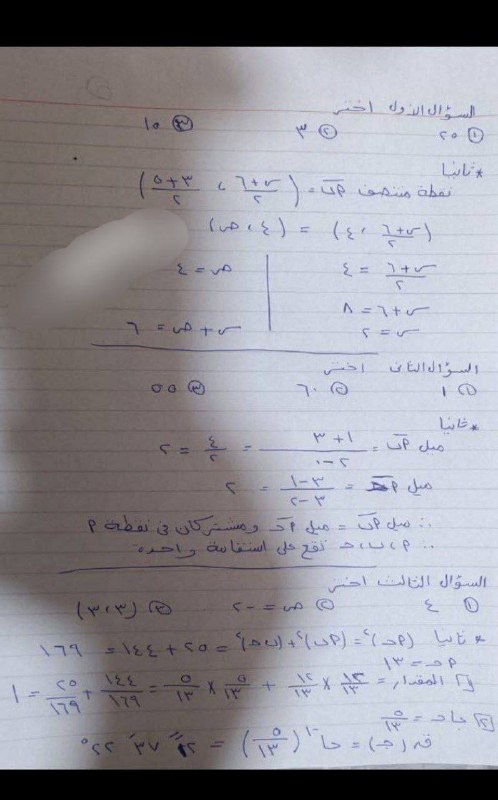 السؤال الأول اختر
① ٢٥ ② ٣ ③ ١٥
* ثانيا
نقطة منتصف اب = (س+٦/٢ ، ٣+٥/٢)
(س+٦/٢ ، ٤) = (٤ ، ص)
س+٦/٢ = ٤ ص = ٤
س+٦ = ٨
س = ٢ س + ص = ٦
السؤال الثانى اختر
① ١ ② ٦٠ ③ ٥٥
* ثانيا
ميل اب = ١+٣/٢-٠ = ٤/٢ = ٢
ميل = ٣-١/٣-٢ = ٢
∴ ميل اب = ميل اجـ ومشتركان فى نقطة ا
∴ ا ، ب ، جـ تقع على استقامة واحدة
السؤال الثالث اختر
① ٤ ② ص = -٢ ③ (٣،٣)
* ثانيا (اجـ)٢ = (اب)٢ + (ب جـ)٢ = ٢٥ + ١٤٤ = ١٦٩
اجـ = ١٣
[١] المقدار = ١٢/١٣ × ١٢/١٣ + ٥/١٣ × ٥/١٣ = ١٤٤/١٦٩ + ٢٥/١٦٩ = ١
[٢] جا جـ = ٥/١٣
ق(جـ) = جا-١ (٥/١٣) = ٣٧ ٢٢°